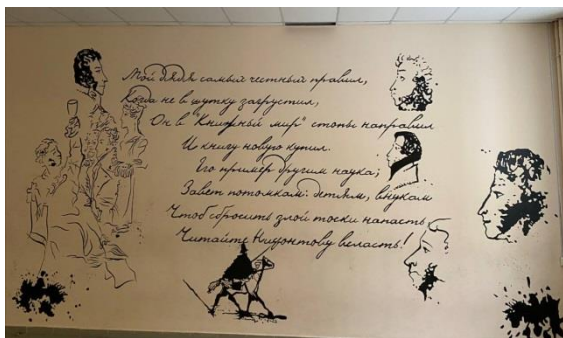 Мой дядя самый честный правил,
Когда не в шутку загрустил,
Он в "Книжный мир" стопы направил
И книгу новую купил.
Его пример другим наука;
Завет потомкам: детям, внукам
Чтоб сбросить злой тоски напасть
Читайте всласть!